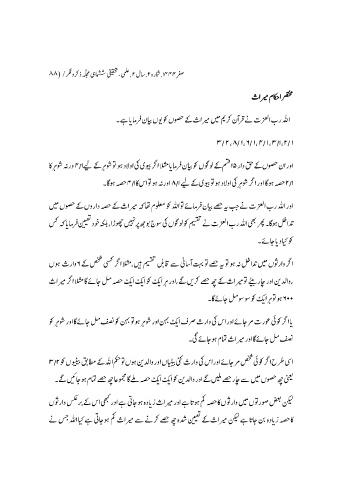 صفر ۱۴۴۴، شمارہ ۲، سال ۲، علمی، تحقیقی ششماہی مجلہ ذکر و فکر / (۸۸)
مختصر احکام میراث
اللہ رب العزت نے قرآن کریم میں میراث کے حصوں کو یوں بیان فرمایا ہے۔
۳/۲، ۸/۱، ۶/۱، ۴/۱، ۳/۱، ۲/۱
اور ان حصوں کے حق دار ۱۵ قسم کے لوگوں کو بیان فرمایا مثلا اگر بیوی کی اولاد ہو تو شوہر کے لیے ۴/۱ ورنہ شوہر کا
۲/۱ حصہ ہوگا اور اگر شوہر کی اولاد ہو تو بیوی کے لیے ۸/۱ اور نہ ہو تو اس کا ۴/۱ حصہ ہوگا۔
اور اللہ رب العزت نے جب یہ حصے بیان فرمائے تو اللہ کو معلوم تھا کہ میراث کے حصہ داروں کے حصوں میں
تداخل ہوگا۔ پھر بھی اللہ رب العزت نے تقسیم کو لوگوں کی سوچ بوجھ پر نہیں چھوڑا، بلکہ خود تعیین فرمایا کہ کس
کو کیا دیا جائے۔
اگر وارثوں میں تداخل نہ ہو تو یہ حصے تو بہت آسانی سے قابل تقسیم ہیں، مثلا اگر کسی شخص کے ۶ وارث ہوں
، والدین اور چار بیٹے تو میراث کے چھ حصے کریں گے، اور ہر ایک کو ایک ایک حصہ مل جائے گا مثلا اگر میراث
۶۰۰ ہو تو ہر ایک کو سو سو مل جائے گا۔
یا اگر کوئی عورت مر جائے اور اس کی وارث صرف ایک بہن اور شوہر ہو تو بہن کو نصف مل جائے گا اور شوہر کو
نصف مل جائے گا اور میراث تمام ہو جائے گی۔
اسی طرح اگر کوئی شخص مر جائے اور اس کی وارث کئی بیٹیاں اور والدین ہوں تو حکم اللہ کے مطابق بیٹیوں کو ۳/۲
یعنی چھ حصوں میں سے چار حصے ملیں گے اور والدین کو ایک ایک حصہ ملے گا مجموعا چھ حصے تمام ہو جائیں گے۔
لیکن بعض صورتوں میں وارثوں کا حصہ کم ہوتا ہے اور میراث زیادہ ہو جاتی ہے اور کبھی اس کے برعکس وارثوں
کا حصہ زیادہ بن جاتا ہے لیکن میراث کے تعیین شدہ چھ حصے کرنے سے میراث کم ہو جاتی ہے کیا اللہ جس نے